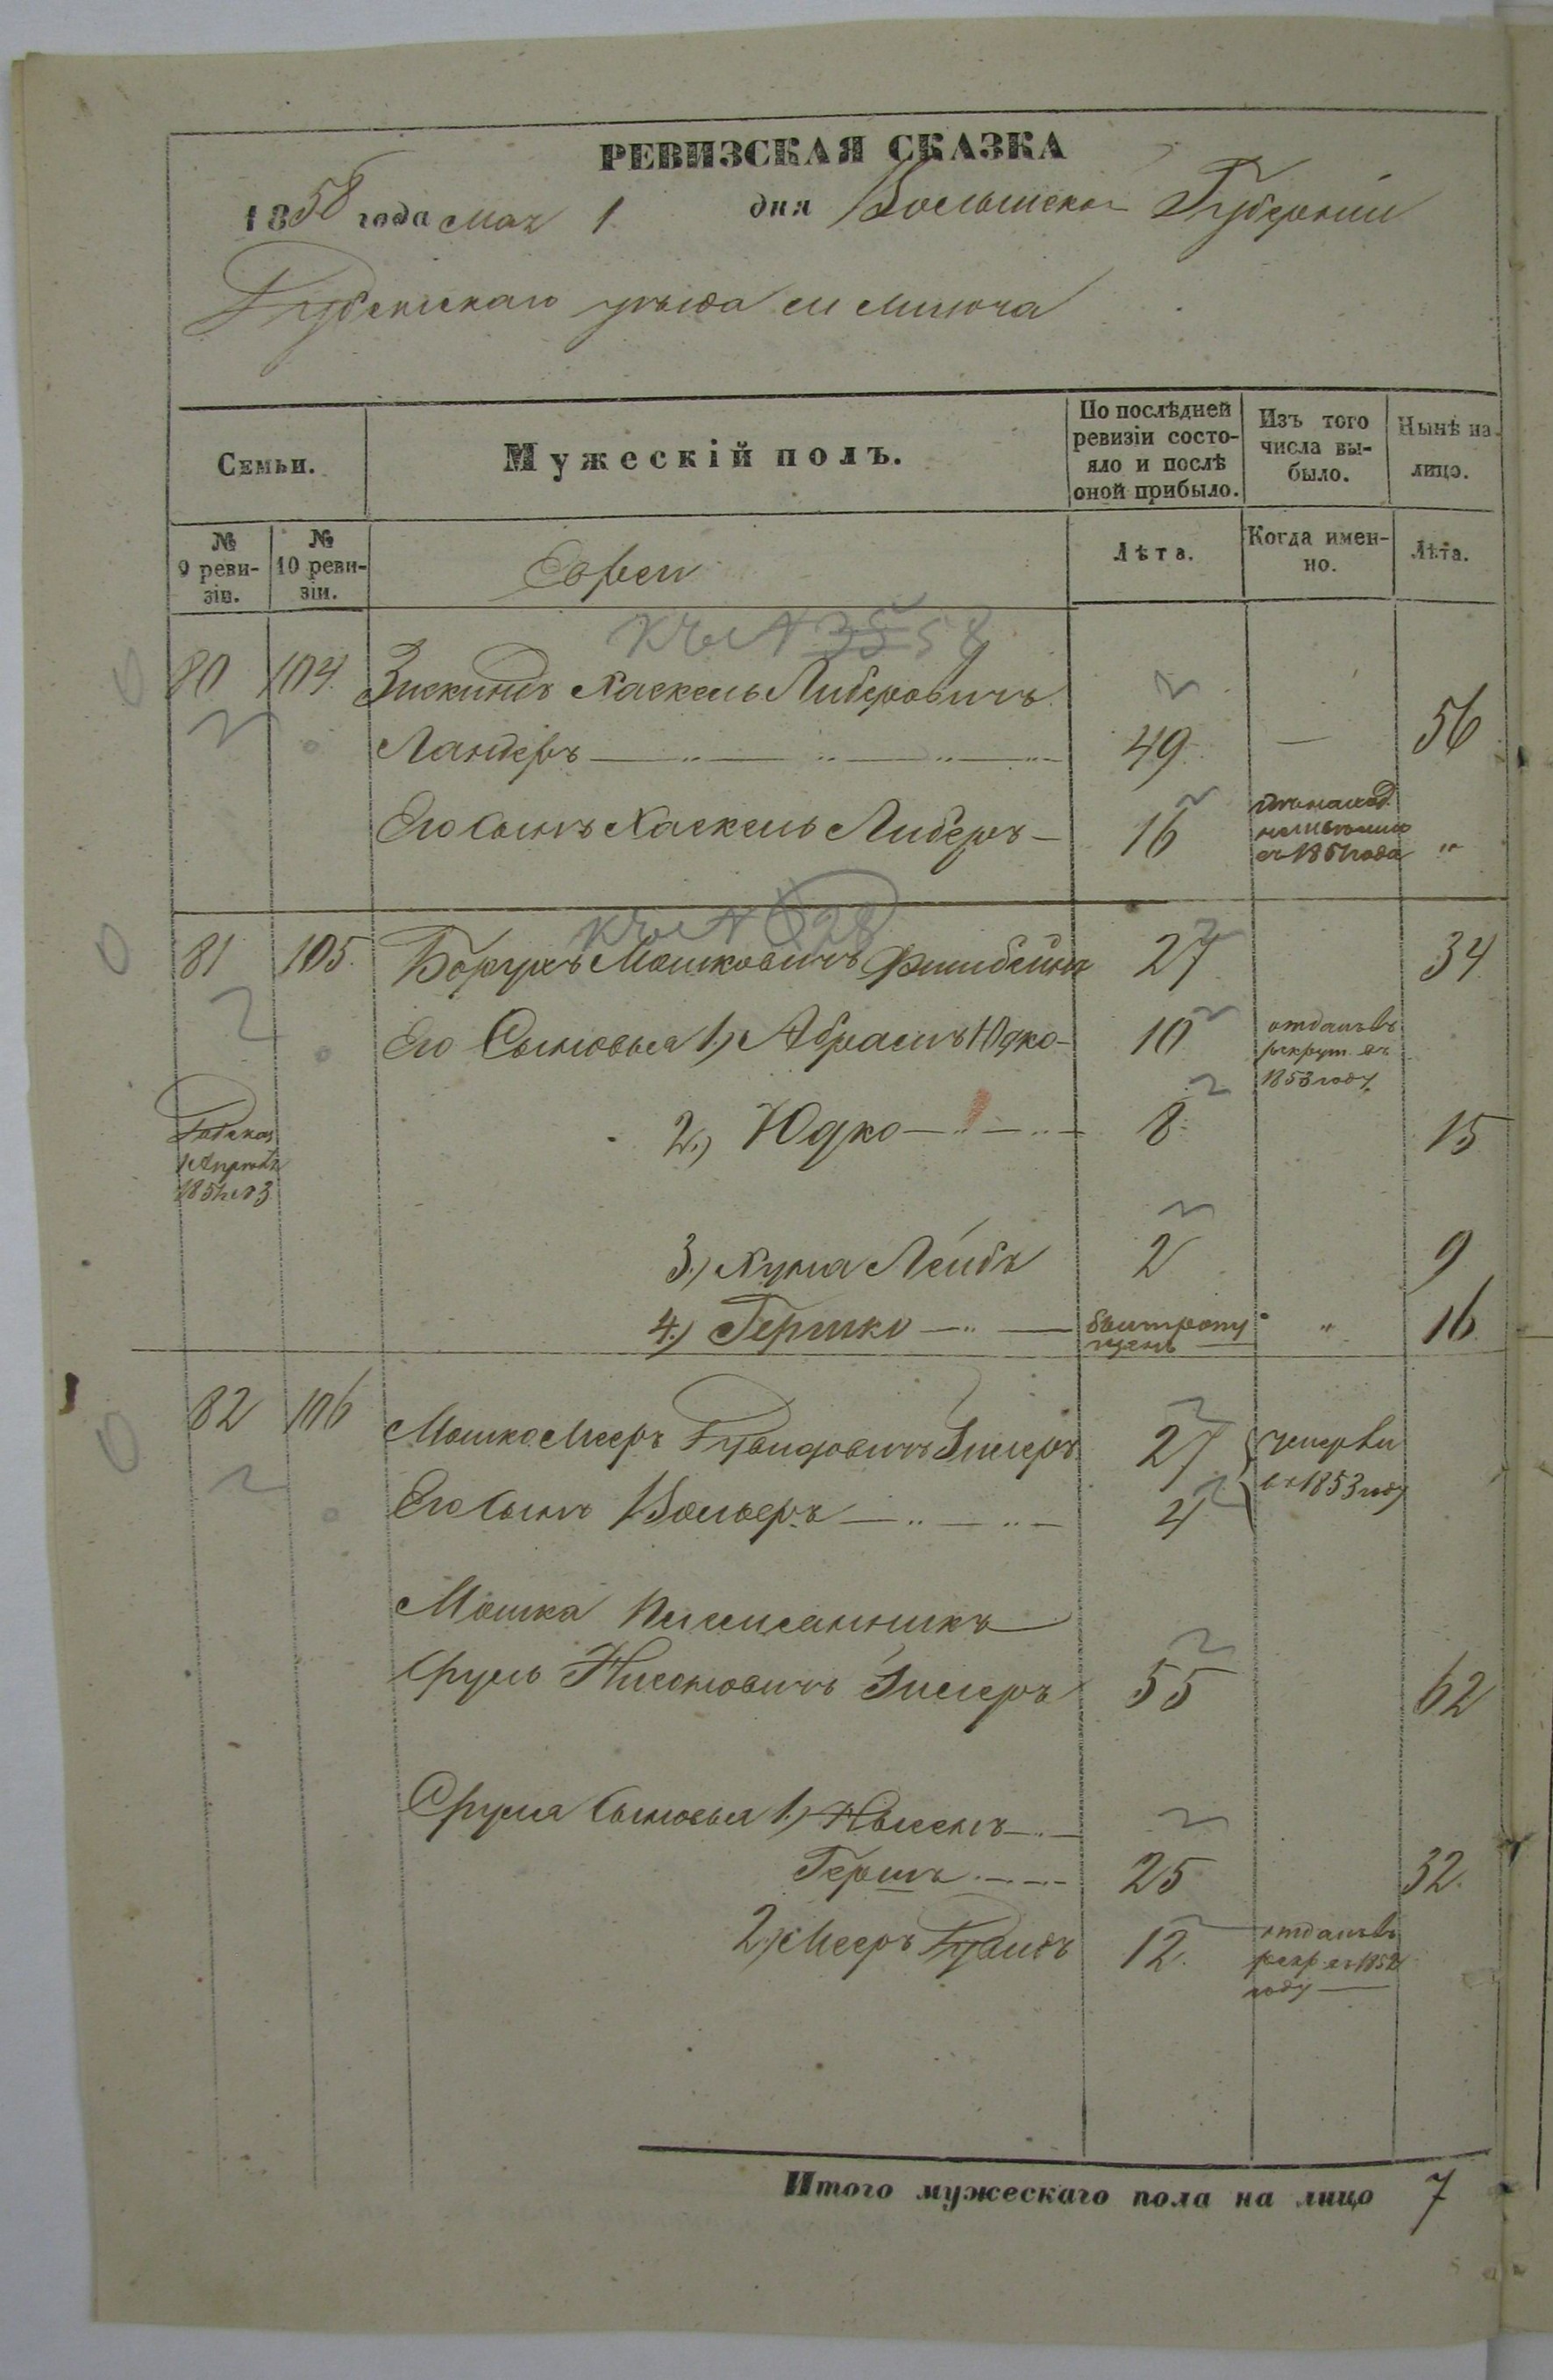 РЕВИЗСКАЯ СКАЗКА
1858 года мая 1 дня Волынской Губерніи
Дубенскаго уѣзда м Млинова
Семьи.
Мужескій полъ.
По послѣдней ревизіи состояло и послѣ оной прибыло.
Изъ того числа выбыло.
Нынѣ на лицо.
№ 9 ревизіи.
№ 10 ревизіи.
Евреи
Лѣта.
Когда именно.
Лѣта.
58
80 104. Зискиндъ Хаскель Либеровичъ
Ландеръ 49 — 56
Его сынъ Хаскель Либеръ — 16 съ 1857 года "
81 105. Борухъ Мошковичъ Фишбейнъ 27 34
Его Сыновья 1.) Абрамъ Юдко — 10 отданъ въ рекрут. въ 1853 году
2.) Юдко 8 15
3.) Лейбъ 2 9
4.) Гершко былъ пропущенъ " 16
82 106 Мошко Мееръ Зисеръ 27 умерли
Его сынъ Вольферъ 4 въ 1853 году
Мошка племянникъ
Сруль Нисоновичъ Зисеръ 55 62
Сруля сыновья 1.) Нысенъ
Гершъ 25 32.
2.) Мееръ 12. отданъ въ рекр въ 1852 году
Итого мужескаго пола на лицо 7